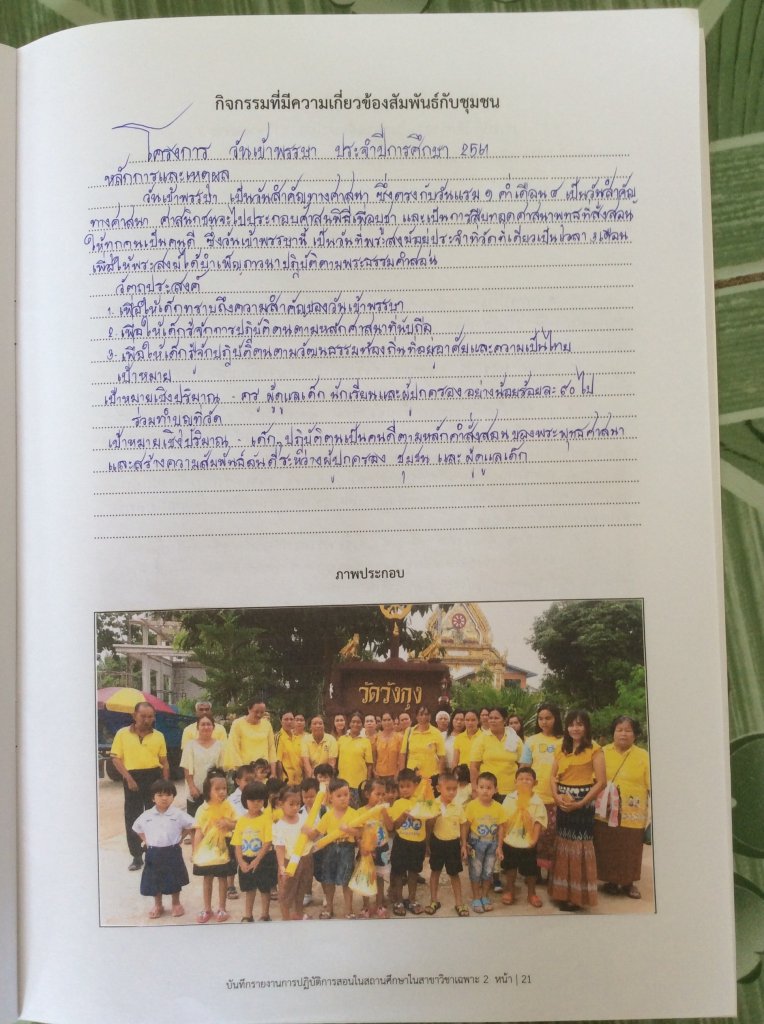 กิจกรรมที่มีความเกี่ยวข้องสัมพันธ์กับชุมชน
โครงการ วันเข้าพรรษา ประจำปีการศึกษา 2561
หลักการและเหตุผล
วันเข้าพรรษา เป็นวันสำคัญทางศาสนา ซึ่งตรงกับวันแรม ๑ ค่ำเดือน ๘ เป็นวันสำคัญ
ทางศาสนา ศาสนิกชนจะไปประกอบศาสนพิธีเพื่อบูชา และเป็นการสืบทอดศาสนาพุทธที่สั่งสอน
ให้ทุกคนเป็นคนดี ซึ่งวันเข้าพรรษานี้ เป็นวันที่พระสงฆ์อยู่ประจำที่วัดที่เดียวเป็นเวลา ๓ เดือน
เพื่อให้พระสงฆ์ได้บำเพ็ญภาวนาปฏิบัติตามพระธรรมคำสอน
วัตถุประสงค์
1. เพื่อให้เด็กทราบถึงความสำคัญของวันเข้าพรรษา
2. เพื่อให้เด็กรู้จักการปฏิบัติตนตามหลักศาสนาที่นับถือ
3. เพื่อให้เด็กรู้จักปฏิบัติตนตามวัฒนธรรมท้องถิ่นที่อยู่อาศัยและความเป็นไทย
เป้าหมาย
เป้าหมายเชิงปริมาณ - ครู ผู้ดูแลเด็ก นักเรียนและผู้ปกครอง อย่างน้อยร้อยละ ๙๐ ไป
ร่วมทำบุญที่วัด
เป้าหมายเชิงปริมาณ - เด็ก ปฏิบัติตนเป็นคนดีตามหลักคำสั่งสอนของพระพุทธศาสนา
และสร้างความสัมพันธ์อันดีระหว่างผู้ปกครอง ชุมชน และ ผู้ดูแลเด็ก
ภาพประกอบ
วัดวังกุง
บันทึกรายงานการปฏิบัติการสอนในสถานศึกษาในสาขาวิชาเฉพาะ 2 หน้า | 21